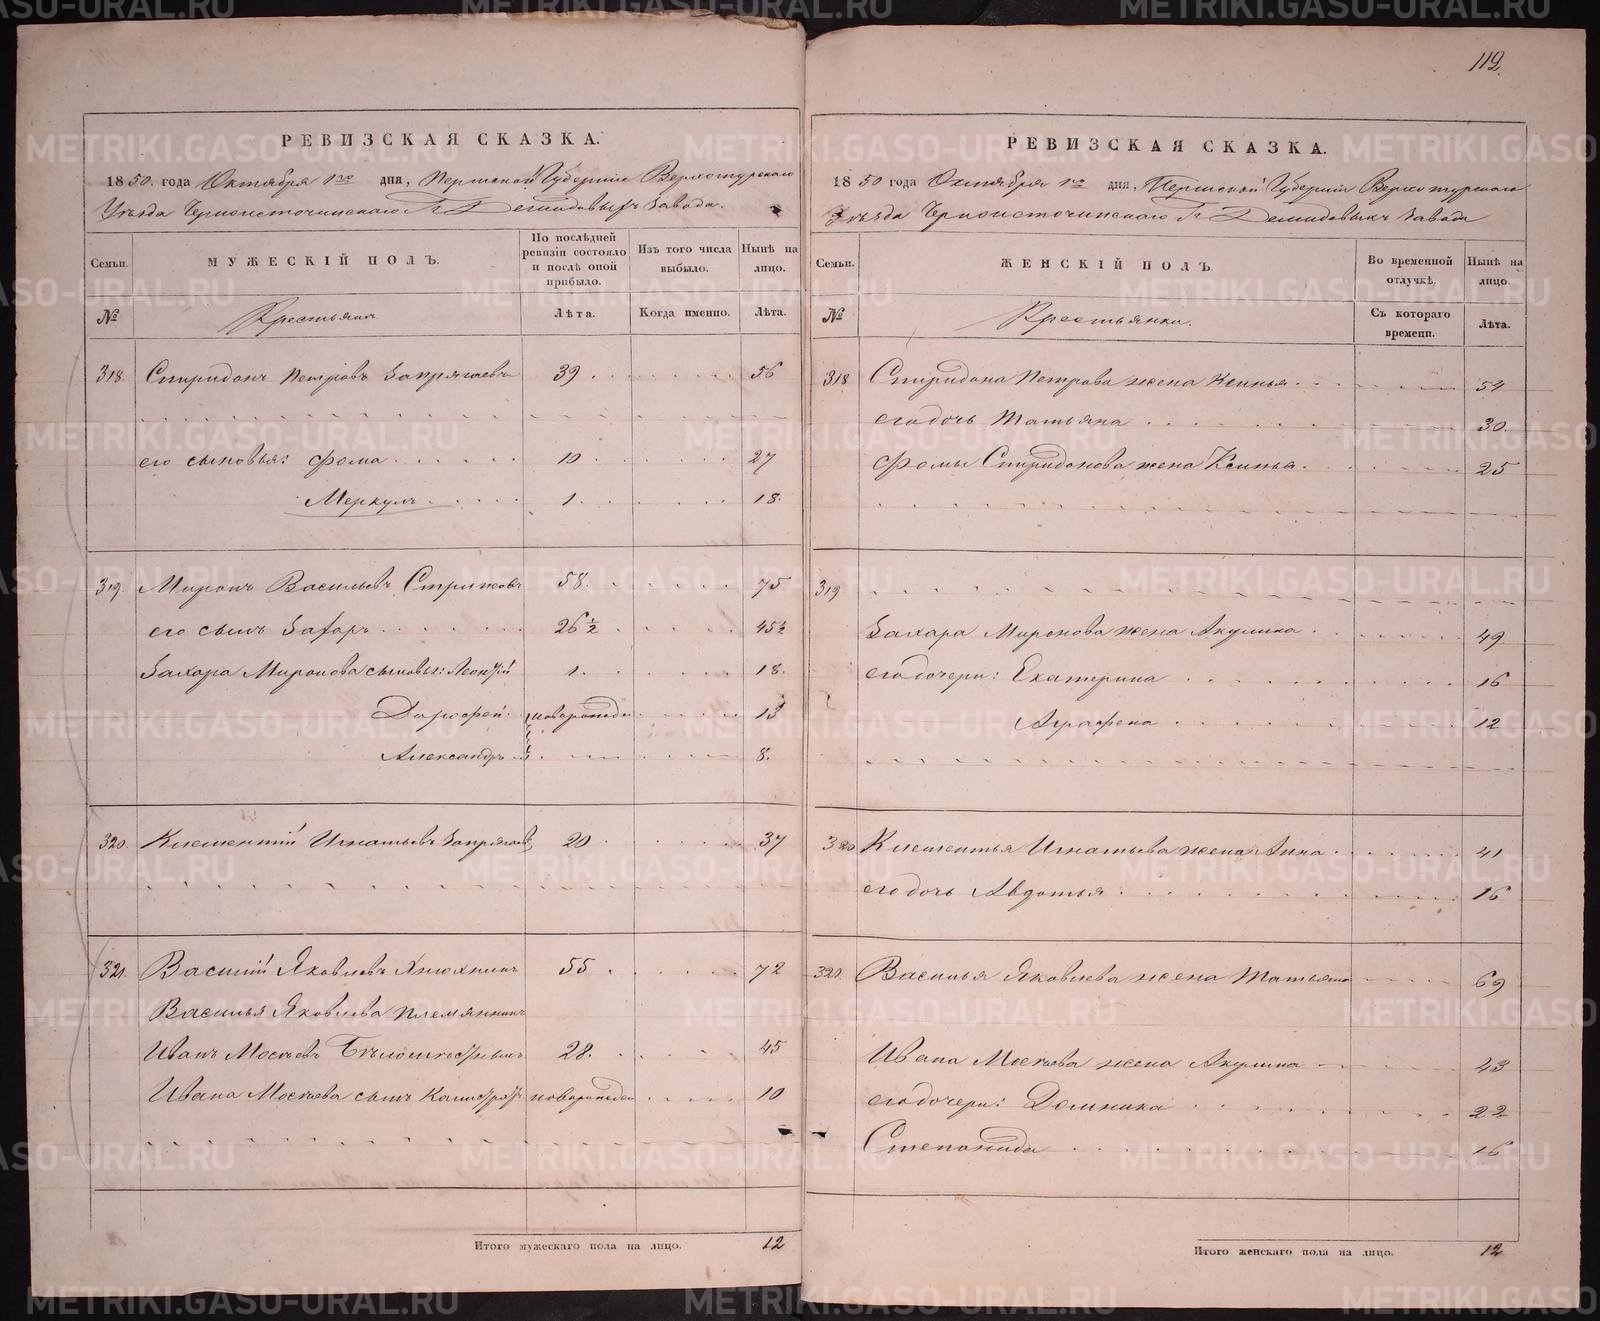 112.
РЕВИЗСКАЯ СКАЗКА.
1850. года Октября 1го дня, Пермской Губерніи Верхотурскаго
Уѣзда Черноисточинскаго Гг. Демидовыхъ завода.
Семьи. МУЖЕСКІЙ ПОЛЪ. По послѣдней ревизіи состояло и послѣ оной прибыло. Изъ того числа выбыло. Нынѣ на лицо.
№ Крестьяне Лѣта. Когда именно. Лѣта.
318. Спиридонъ Петровъ Запрягаевъ 39 56
его сыновья: Фома 10 27
Меркулъ 1 18.
319. Миронъ Васильевъ Стрижовъ 58. 75
его сынъ Захаръ 26½ 45½
Захара Миронова сыновья: Леонтій 1. 18.
Дарофей новорожден 13
Александръ 8.
320. Клементій Игнатьевъ Запрягаевъ 20 37
321. Василій Яковлевъ 55 72
Василья Яковлева племянникъ
Иванъ Мосѣевъ 28. 45
Ивана Мосѣева сынъ Калистратъ новорожден 10
Итого мужескаго пола на лицо. 12
РЕВИЗСКАЯ СКАЗКА.
1850 года Октября 1го дня, Пермской Губерніи Верхотурскаго
Уѣзда Черноисточинскаго Гг. Демидовыхъ завода
Семьи. ЖЕНСКІЙ ПОЛЪ. Во временной отлучкѣ. Нынѣ на лицо.
№ Крестьянки. Съ котораго времени. Лѣта.
318 Спиридона Петрова жена Ксинья 54
его дочь Татьяна 30.
Фомы Спиридонова жена Ксинья 25
319
Захара Миронова жена Акулина 49.
его дочери: Екатерина 16
Аграфена 12
320 Клементья Игнатьева жена Анна 41
его дочь Авдотья 16
320. Василья Яковлева жена Татьяна 69
Ивана Мосѣева жена Акулина 43
его дочери: Домника 22
Степонида 16
Итого женскаго пола на лицо. 12
METRIKI.GASO-URAL.RU